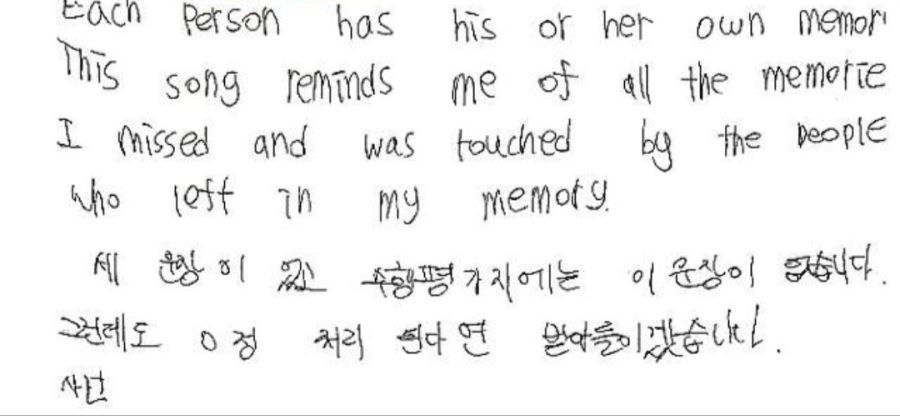 Each Person has his or her own memori
This song reminds me of all the memorie
I missed and was touched by the people
who left in my memory.
세 문장이 있고 수행평가지에는 이 문장이 없습니다.
그런데도 0점 처리 된다면 받아들이겠습니다!
사면